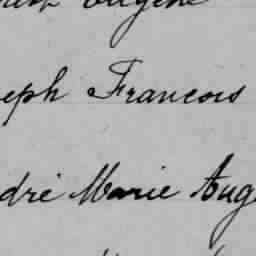 Eugène
eph Francois
dré Marie Aug